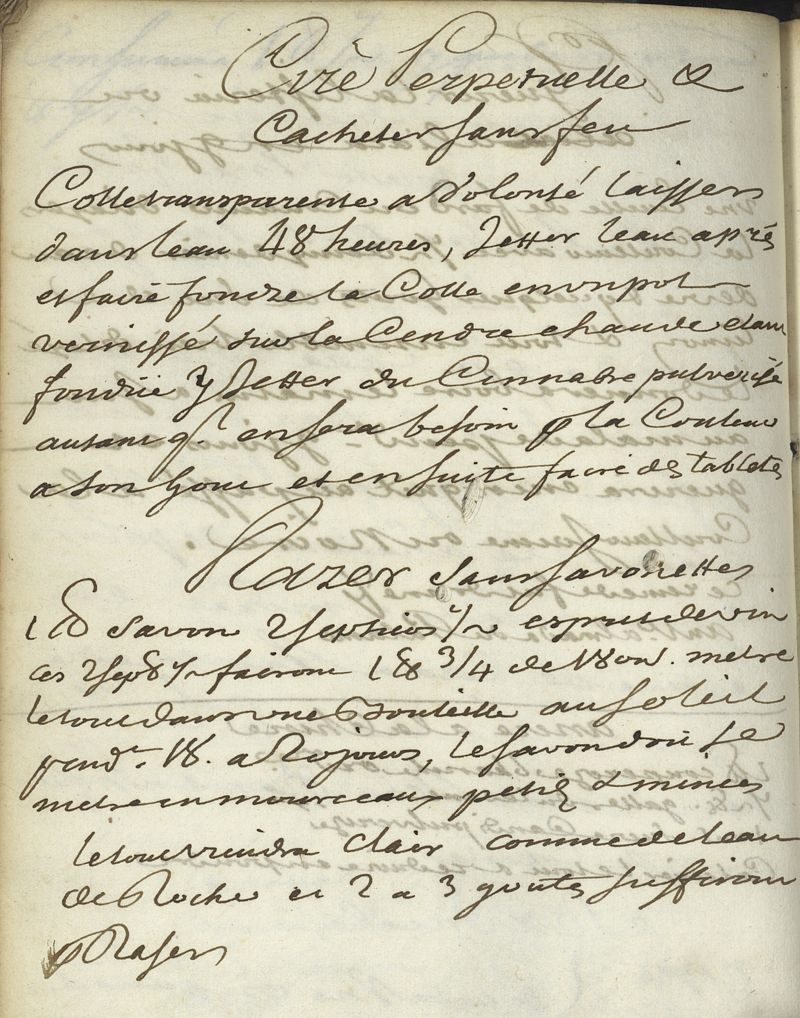 Cire Perpetuelle &
Cacheter sans feu
Colle transparente a Volonté laisser
dans leau 48 heures, Jetter leau après
et faire fondre la Colle en un pot
vernissé sur la Cendre chaude etant
fondüe y Jetter du Cinnabre pulverisé
autant qu'l en sera besoin p la Couleur
a son gout et ensuite faire des tabletes
Razer sans savonettes
1 ℔ savon esprit de vin
ces fairont 1 ℔ 3/4 de 18 on. metre
le tout dans une Bouteille au soleil
pendt. 18. a 20 jours, le savon doit se
metre en mourceaux petits & minces
le tout viendra clair comme de leau
de Roche et 2 a 3 goutes suffiront
p Raser